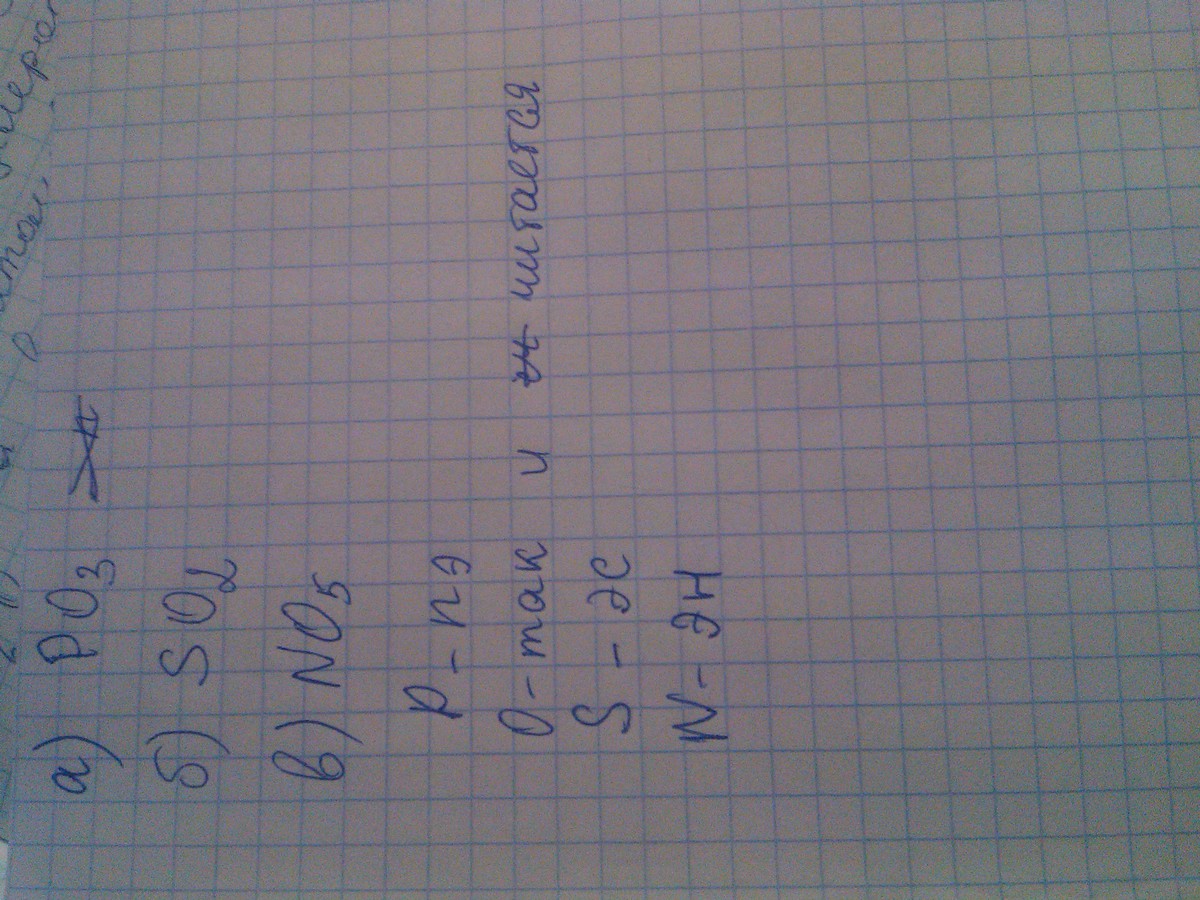 а) PO3
б) SO2
в) NO5
P - пэ
O - так и читается
S - эс
N - эн